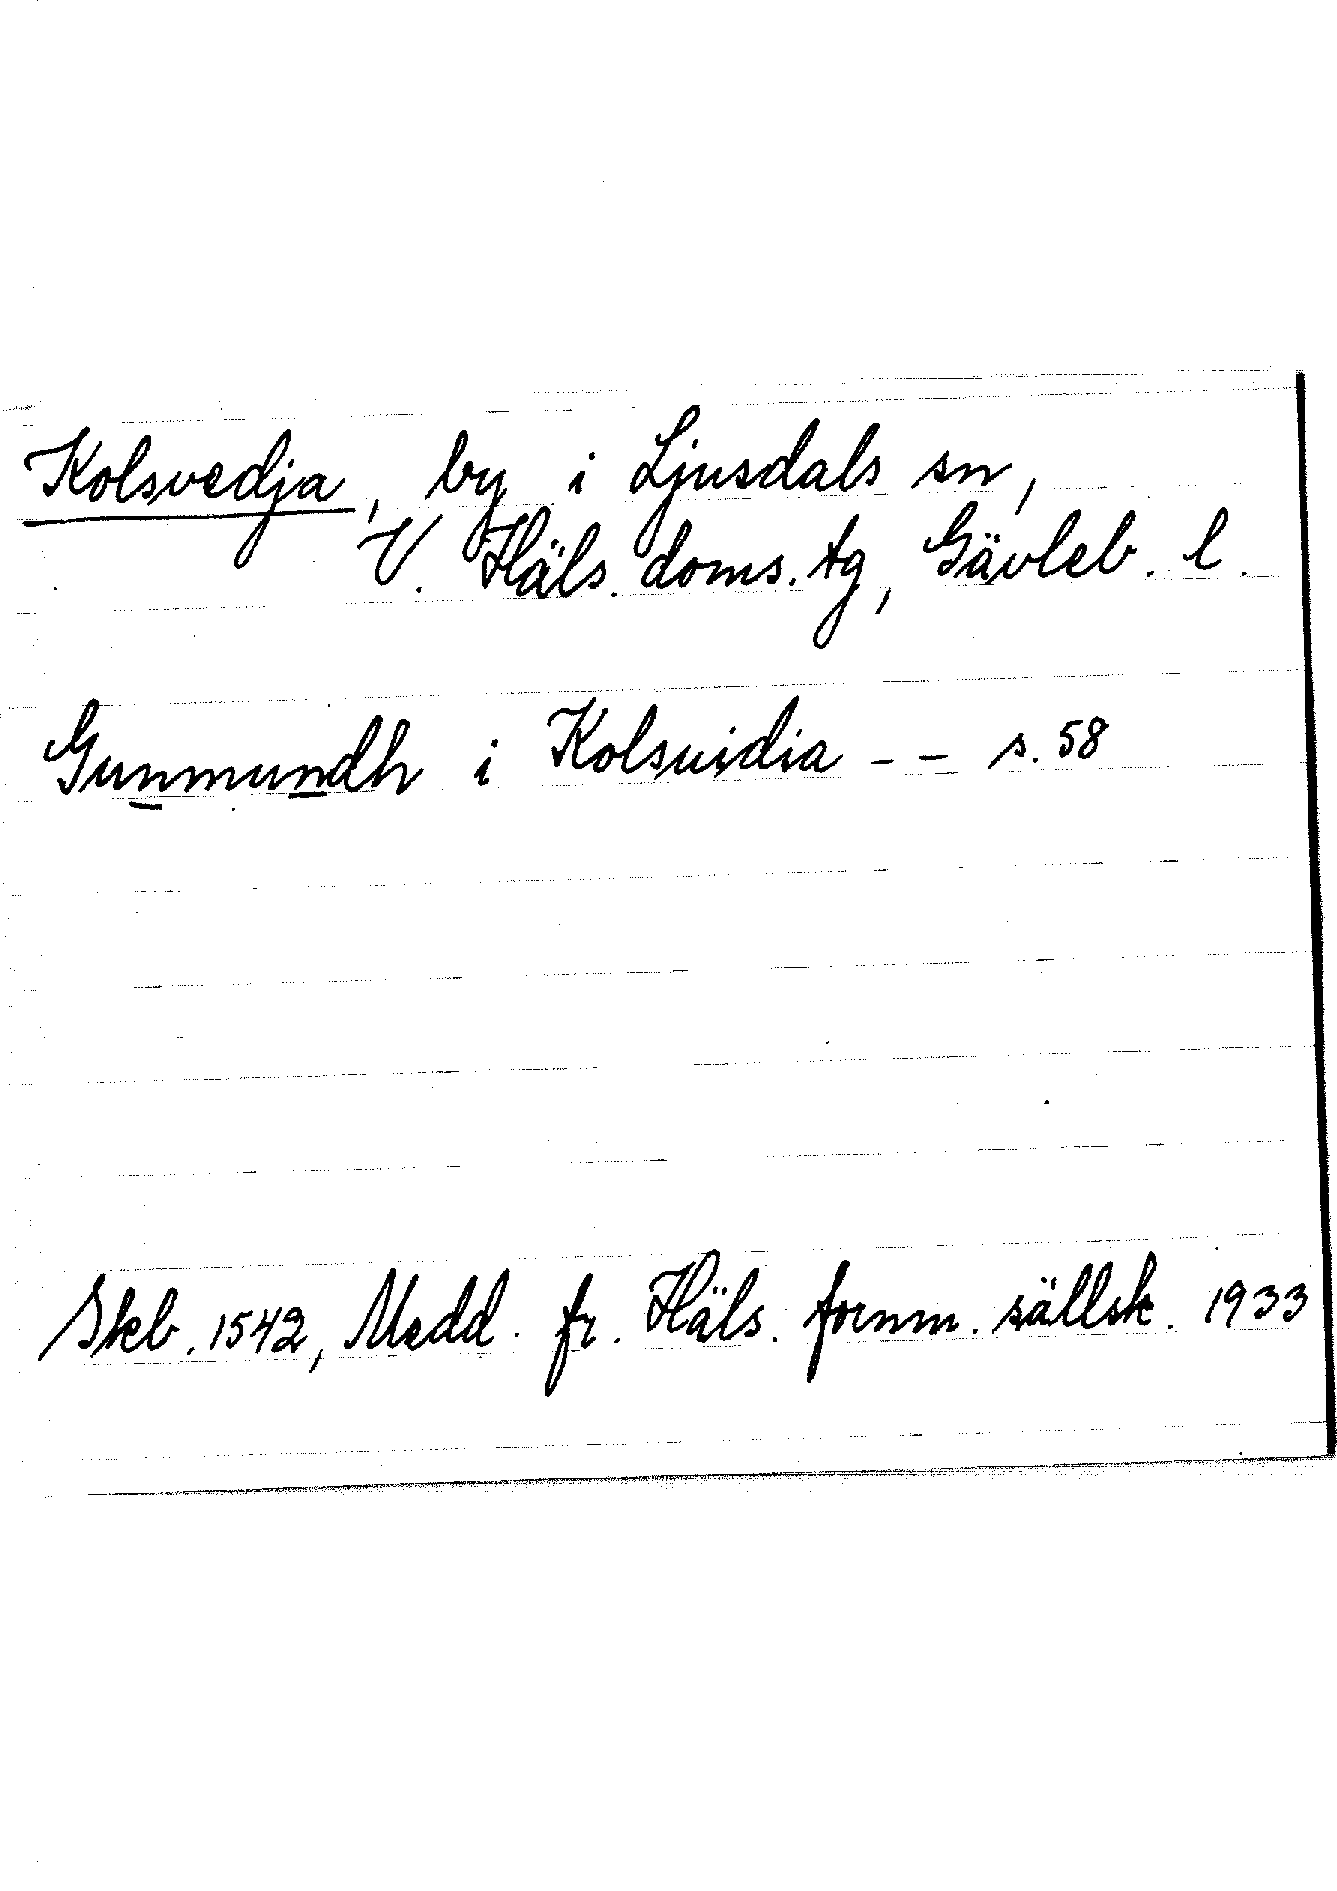 Kolsvedja, by i Ljusdals sn,
V. Häls. doms. tg, Gävleb. l.
Gunmundh i Kolsuidia - - s. 58
Skb. 1542, Medd. fr. Häls. fornm. sällsk. 1933